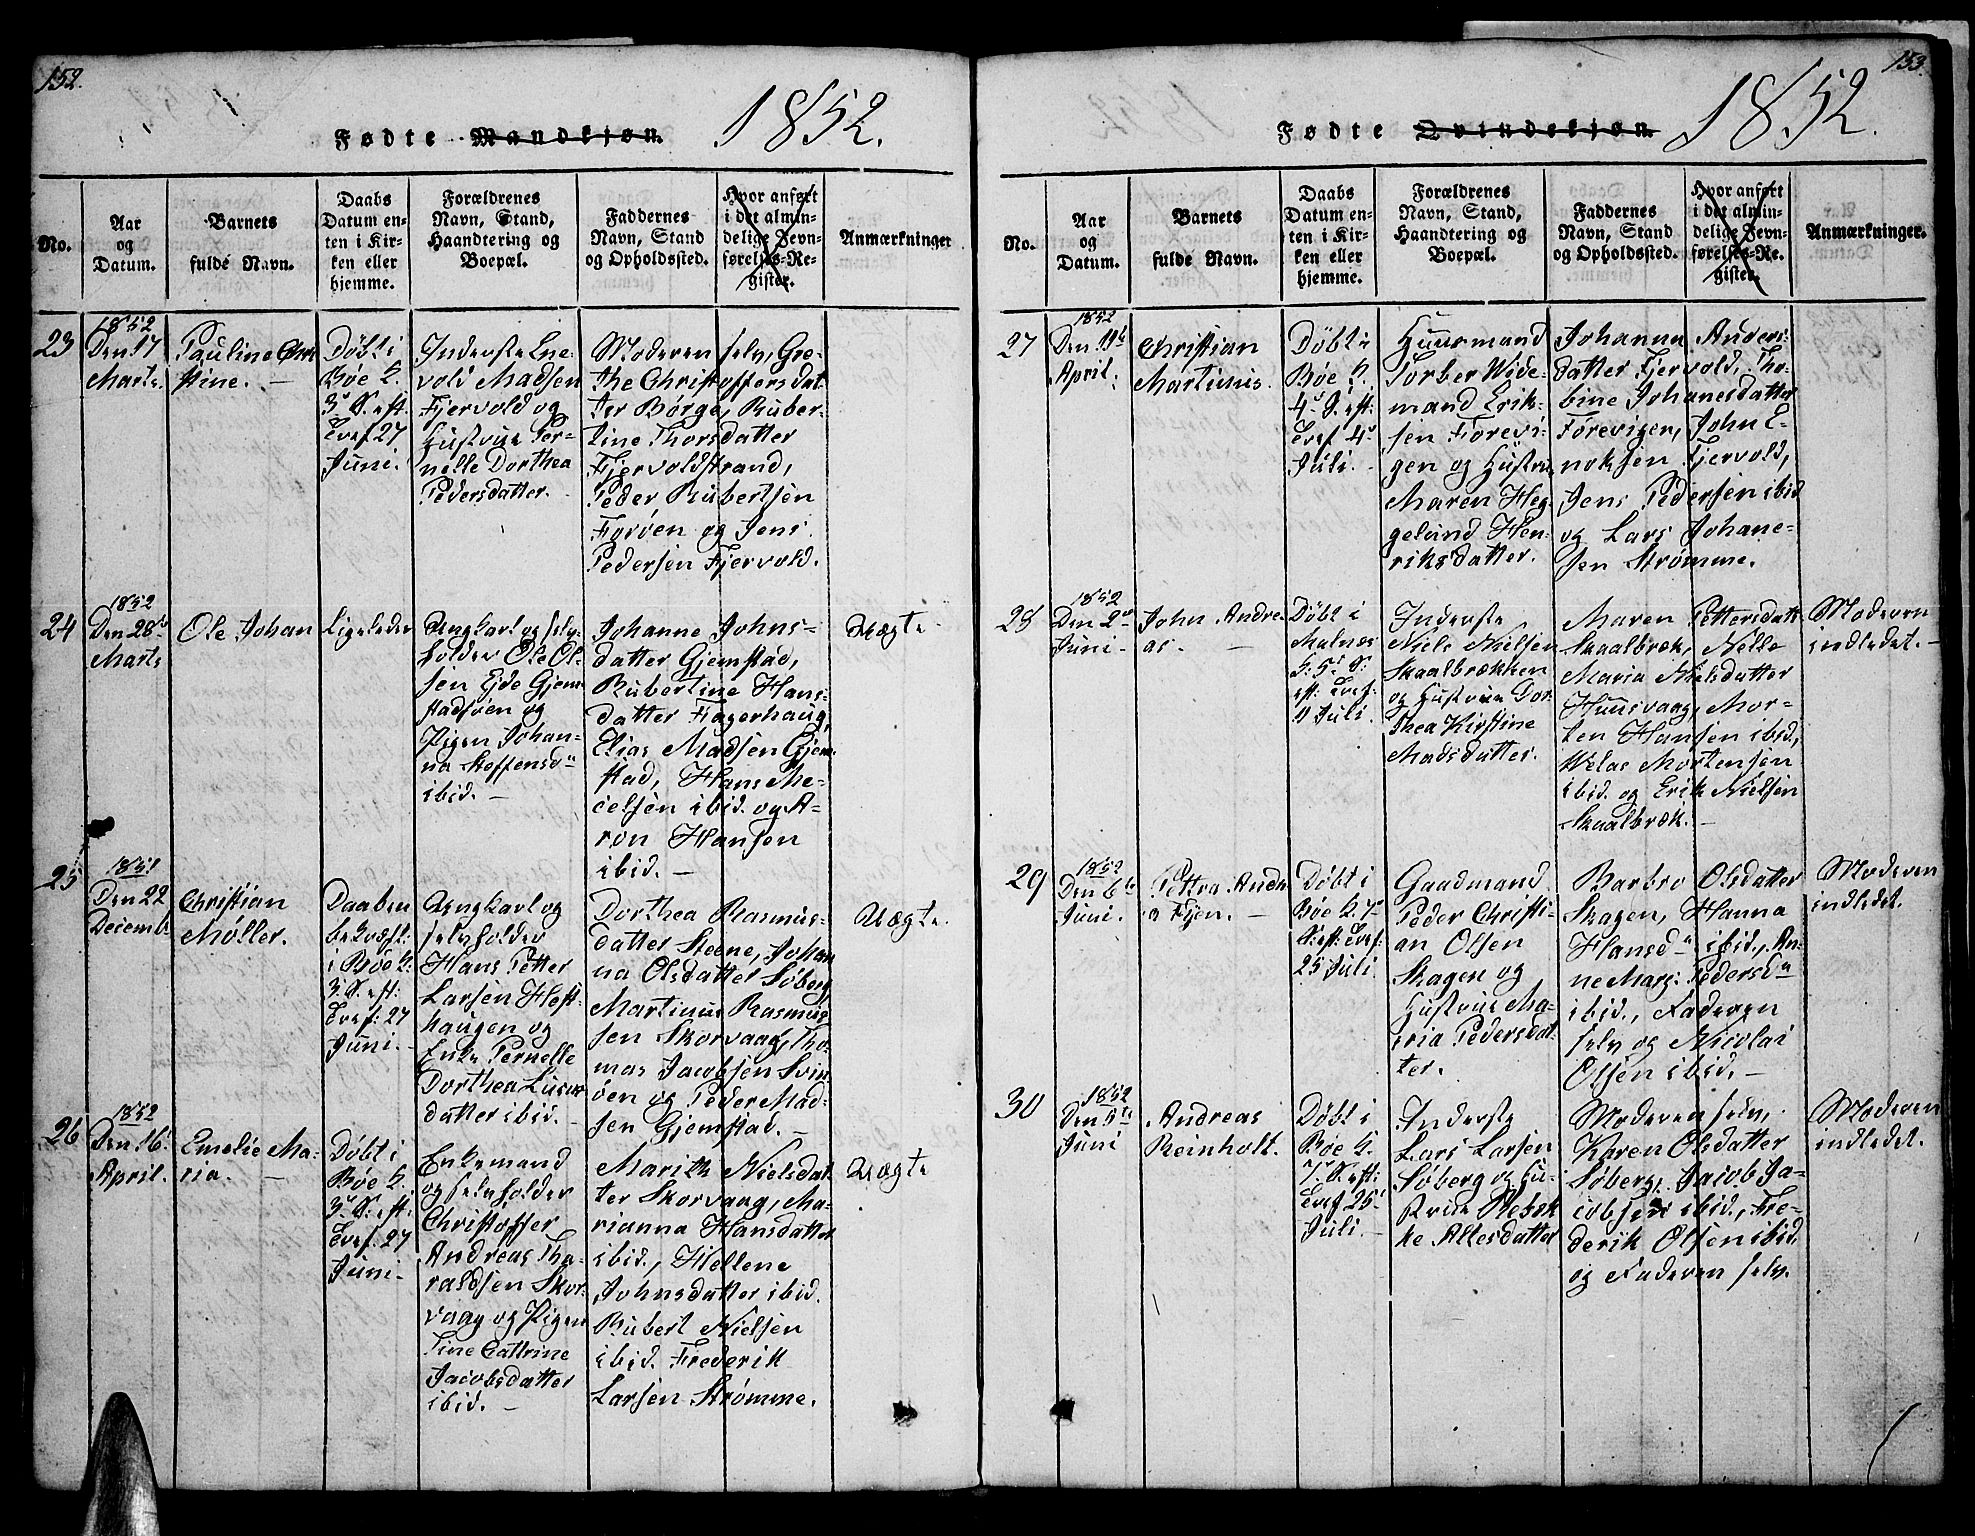 152.
Fødte Mandkjøn. 1852.
No.
Aar
og
Datum.
Barnets
fulde Navn.
Daabs
Datum en-
ten i Kir-
ken eller
hjemme.
Forældrenes
Navn, Stand,
Haandtering og
Boepæl.
Faddernes
Navn, Stand
og Opholdssted.
Hvor anført
i det almin-
delige Jevn-
førelses-Re-
gister.
Anmærkninger
23
1852
Den 17
Marts
Pauline Chri
stine. —
Døbt i
Bøe K.
3' S. eft.
Tref 27
Juni.
Inderste Ene-
vold Madsen
Fjervold og
Hustrue Per-
nelle Dorthea
Pedersdatter.
Moderen selv, Gre-
the Christoffersdat-
ter Børge, Ruber-
tine Thorsdatter
Fjervoldstrand,
Peder Rubertsen
Forøen og Jens
Pedersen Fjervold.
24
1852
Den 28de
Marts
Ole Johan
Ligeledes
Ungkarl og selv-
holder Ole Ol-
sen Ejde Gjem-
stadsøen og
Pigen Johan-
na Steffensdr
ibid. —
Johanne Johns-
datter Gjemstad,
Rubertine Hans-
datter Fagerhaug,
Elias Madsen Gjem-
stad, Hans Me-
celsen ibid. og A-
ron Hansen
ibid. —
Uægte
25
1851
Den 22
Decemb.
Christian
Møller.
Daaben
bekræft.
i Bøe K.
3. S. eft.
Tref. 27
Juni.
Ungkarl og
selvholder
Hans Petter
Larsen Hest-
haugen og
Enke Pernelle
Dorthea Lucas-
datter ibid. —
Dorthea Rasmus-
datter Steene, Johan
na Olsdatter Søberg,
Martinus Rasmus-
sen Skorvaag, Tho-
mas Jacobsen Svin-
øen og Peder Mad-
sen Gjemstad. —
Uægte.
26
1852
Den 16'
April.
Emelie Ma-
ria. —
Døbt i
Bøe K.
3' S. eft.
Tref. 27
Juni.
Enkemand
og selvholder
Christoffer
Andreas Tha-
raldsen Skor-
vaag og Pigen
Tine Cathrine
Jacobsdatter
ibid. —
Marith Nielsdat-
ter Skorvaag, Ma-
rianna Hansdatter
ibid., Hellene
Johnsdatter ibid.
Rubert Nielsen
ibid. Frederik
Larsen Strømme.
Uægte
153.
Fødte Qvindekjøn. 1852.
No.
Aar
og
Datum.
Barnets
fulde Navn.
Daabs
Datum en-
ten i Kir-
ken eller
hjemme.
Forældrenes
Navn, Stand,
Haandtering og
Boepæl.
Faddernes
Navn, Stand
og Opholdssted.
Hvor anført
i det almin-
delige Jevn-
førelses-Re-
gister.
Anmærkninger.
27
1852
Den 19de
April.
Christian
Martinus.
Døbt i
Bøe K.
4' S. eft.
Tref 4'
Juli.
Huusmand
Torber Wide-
mand Erik-
sen Forevi-
gen og Hustru
Maren Heg-
gelund Hen-
riksdatter.
Johanna Anders-
datter Fjervold, Tho-
bine Johanesdatter
Forevigen, John E-
noksen Fjervold,
Jens Pedersen ibid
og Lars Johane-
sen Strømme.
28
1852
Den 2den
Juni
John Andre-
as. —
Døbt i
Malnes
K. 5' S.
eft. Tref.
Juli.
Inderste
Niels Nielsen
Skaalbrækken
og Hustrue Dor-
thea Kirstine
Madsdatter.
Maren Pettersdatt
Skaalbræk, Nelle
Maria Nielsdatter
Huusvaag, Mor-
ten Hansen ibid,
Welas Mortensen
ibid. og Erik Nielsen
Skaalbræk. —
Moderen
indledet. —
29
1852
Den 6te
Juni.
Pettra Andr
Døbt i
Bøe K. 7'
S. eft. Tref.
25 Juli.
Gaadmand
Peder Christi-
an Olsen
Skagen og
Hustrue Ma-
ria Pedersdat-
ter.
Barbro Olsdatter
Skagen, Hanna
Hansdr ibid., An-
ne Marg: Pedersdr
ibid., Faderen
selv og Nicolai
Olsen ibid. —
Moderen
indledet.
30
1852
Juni
Andreas
Reinholt.
Døbt i
Bøe K.
7. S. eft:
Tref 25'
Juli. —
Inderste
Lars Larsen
Søberg og Hu-
strue Rebek
ke Altesdatter
Moderen selv,
Karen Olsdatter
Søberg, Jacob Ja-
cobsen ibid., Fre-
derik Olsen ibid
og Faderen selv.
Moderen
indledet.